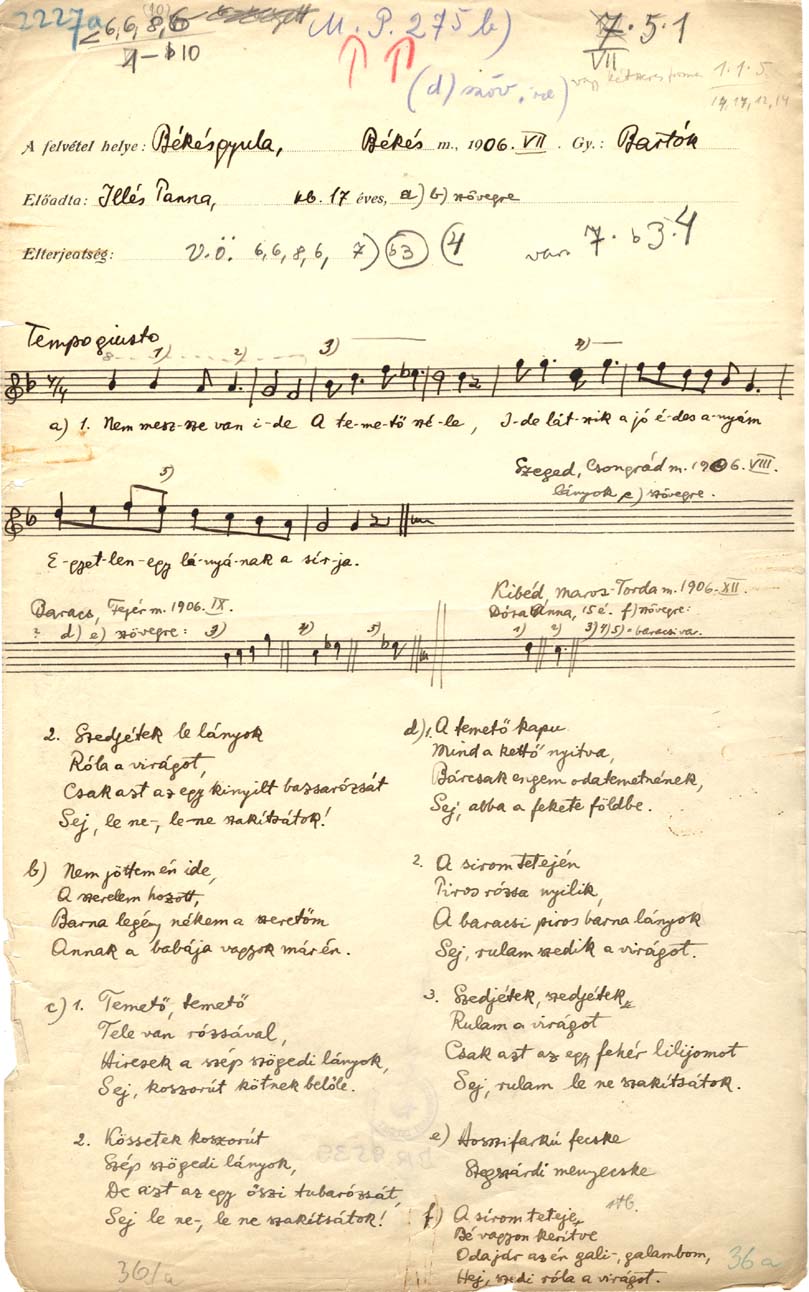 2227a
6, 6, 8, 6
1 – b10
M. P. 275 b)
(d) szöv.
7 · 5 · 1
VII
1 · 1 · 5
A felvétel helye: Békésgyula, Békés m., 1906. VII. Gy.: Bartók
Előadta: Illés Panna, kb. 17 éves, a) b) szövegre
Elterjeatség: V.ö. 6, 6, 8, 6, 7) b3 (4 var. 7 · b3 · 4
Tempo giusto
1) 2) 3) 4)
7/4
a) 1. Nem mesz-sze van i-de A te-me-tő szé-le, I-de lát-szik a jó é-des a-nyám
Szeged, Csongrád m. 1906. VIII.
lányok c) szövegre.
5)
E-gyet-len-egy lá-nyá-nak a sír-ja.
Baracs, Fejér m. 1906. IX.
d) e) szövegre: 3) 4) 5)
Kibéd, Maros-Torda m. 1906. XII.
Dósa Anna, 15 é. f) szövegre:
1) 2) 3) 4) 5) = baracsi var.
2. Szedjétek le lányok
Róla a virágot,
Csak azt az egy kinyilt bazsarózsát
Sej, le ne-, le-ne szakítsátok!
b) Nem jöttem én ide,
A szerelem hozott,
Barna legény nékem a szeretőm
Annak a babája vagyok már én.
c) 1. Temető, temető
Tele van rózsával,
Hiresek a szép szögedi lányok,
Sej, koszorút kötnek belőle.
2. Kössetek koszorút
Szép szögedi lányok,
De azt az egy őszi tubarózsát,
Sej le ne-, le ne szakítsátok!
d) 1. A temető kapu
Mind a kettő nyitva,
Bárcsak engem odatemetnének,
Sej, abba a fekete földbe.
2. A sirom tetején
Piros rózsa nyilik,
A baracsi piros barna lányok
Sej, rulam szedik a virágot.
3. Szedjétek, szedjétek
Rulam a virágot
Csak azt az egy fehér lilijomot
Sej, rulam le ne szakítsátok.
e) Hosszifarkú fecske
Szegszárdi menyecske
stb.
f) A sírom teteje
Bé vagyon kerítve
Odajár az én gali-, galambom,
Hej, szedi róla a virágot.
36/a
36a